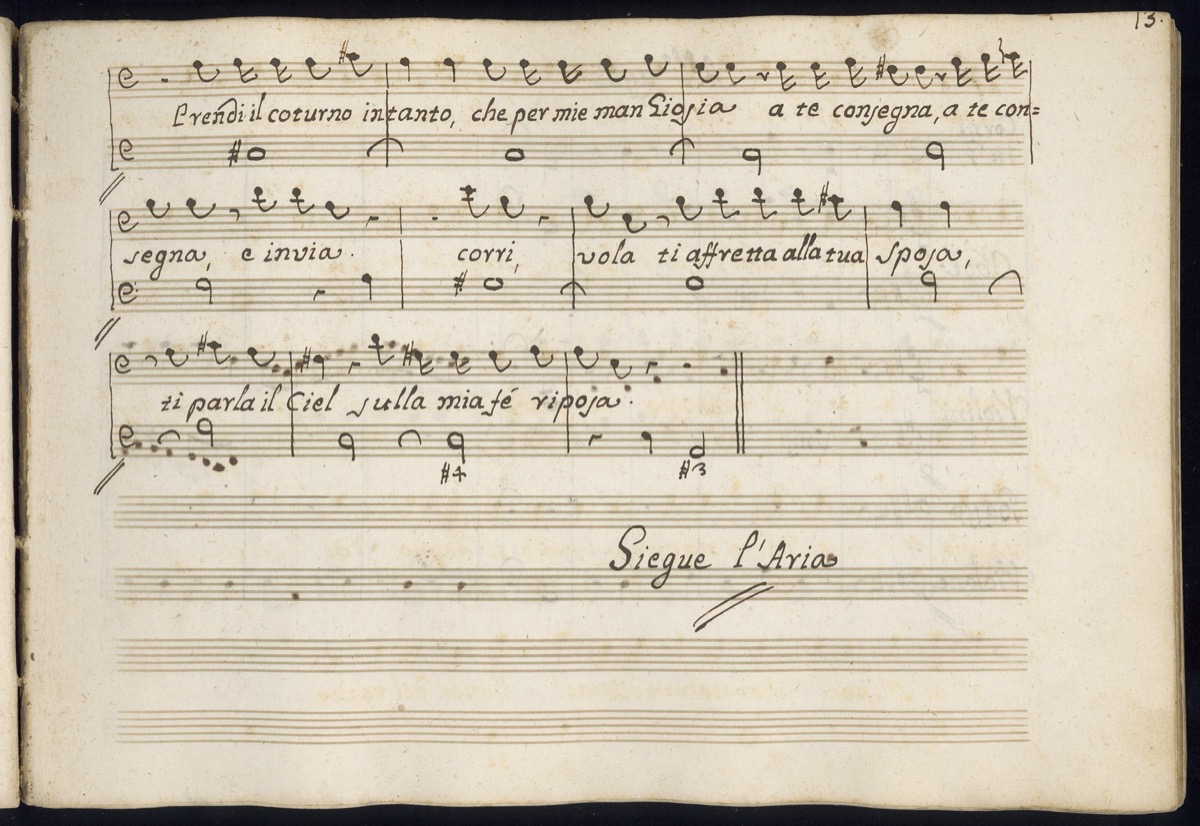 13.
Prendi il coturno intanto, che per mie man Giosia a te consegna, a te con=
segna, e invia. corri, vola ti affretta alla tua sposa,
ti parla il Ciel sulla mia fé riposa.
#4 #3
Siegue l'Aria